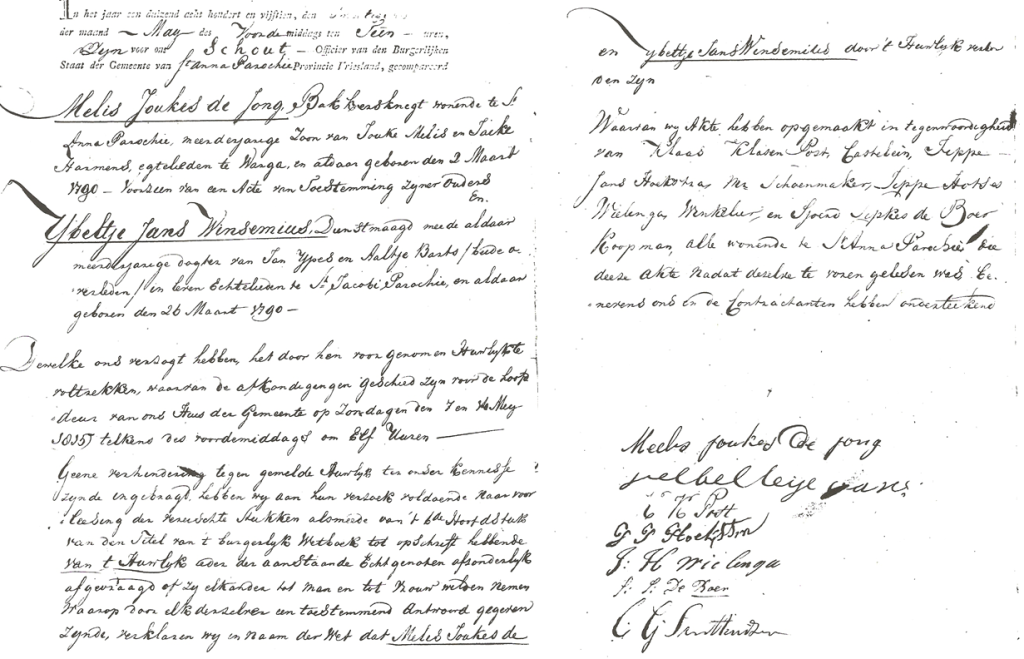 In het jaar een duizend acht honderd en vijftien, den
der maand May des Voorde middags ten Tien uren,
Zyn voor ons Schout Officier van den Burgerlijken
Staat der Gemeente van St Anna Parochie Provincie Vriesland, gecompareerd
Melis Joukes de Jong, Bakkersknegt wonende te St
Anna Parochie, meerderjarige Zoon van Jouke Melis en Tietke
Harmens, egtelieden te Warga, en aldaar geboren den 2 Maart
1790 - Voorzien van een Acte van Toestemming zyner Ouders
En.
Ybeltje Jans Winsemius, Dienstmaagd mede aldaar
meerderjarige dogter van Jan Ypes en Aaltje Barts / beide o
verleden / in leven Echtelieden te St Jacobi Parochie, en aldaar
geboren den 26 Maart 1790 -
Dewelke ons verzogt hebben, het door hen voorgenomen Huwlyk te
voltrekken, waarvan de afkondigengen geschied zyn voor de hoofd
deur van ons Huis der Gemeente op Zondagen den 7 en 14 Mey
1815 telkens des voordemiddags om Elf Uuren
Geene verhindering tegen gemelde Huwlyk ter onder kennisse
zynde ingebragt, hebben wy aan hun verzoek voldoende naar voor
leesing der vereischte stukken alsmeede van 't 6de Hoofdstuk
van den Titel van t burgerlyk Wetboek tot opschrift hebbende
van t Huwlyk ader der aanstaande Echtgenoten afsonderlyk
afgevraagd of zy elkander tot man en tot Vrouw wilden nemen
Waarop door elk derzelver een toestemmend Antwoord gegeven
zynde, verklaren wy in Naam der Wet dat Melis Joukes de
en Ybeltje Jans Winsemius door 't Huwlyk verbon
den zyn
Waarvan wy Akte hebben opgemaakt in tegenwoordigheid
van Klaas Klasen Post, Castelein, Jeppe
Jans Hoekstra, Mr Schoenmaker, Jeppe Hotses
Wielenga, Winkelier, en Sjoerd Sepkes de Boer
Koopman, alle wonende te St Anna Parochie die
deeze Akte nadat dezelve te voren gelesen was be
nevens ons en de Contractanten hebben ondertekend
Melis Joukes De Jong
K K Post
J J Hoekstra
J: H Wielenga
S: S: De Boer